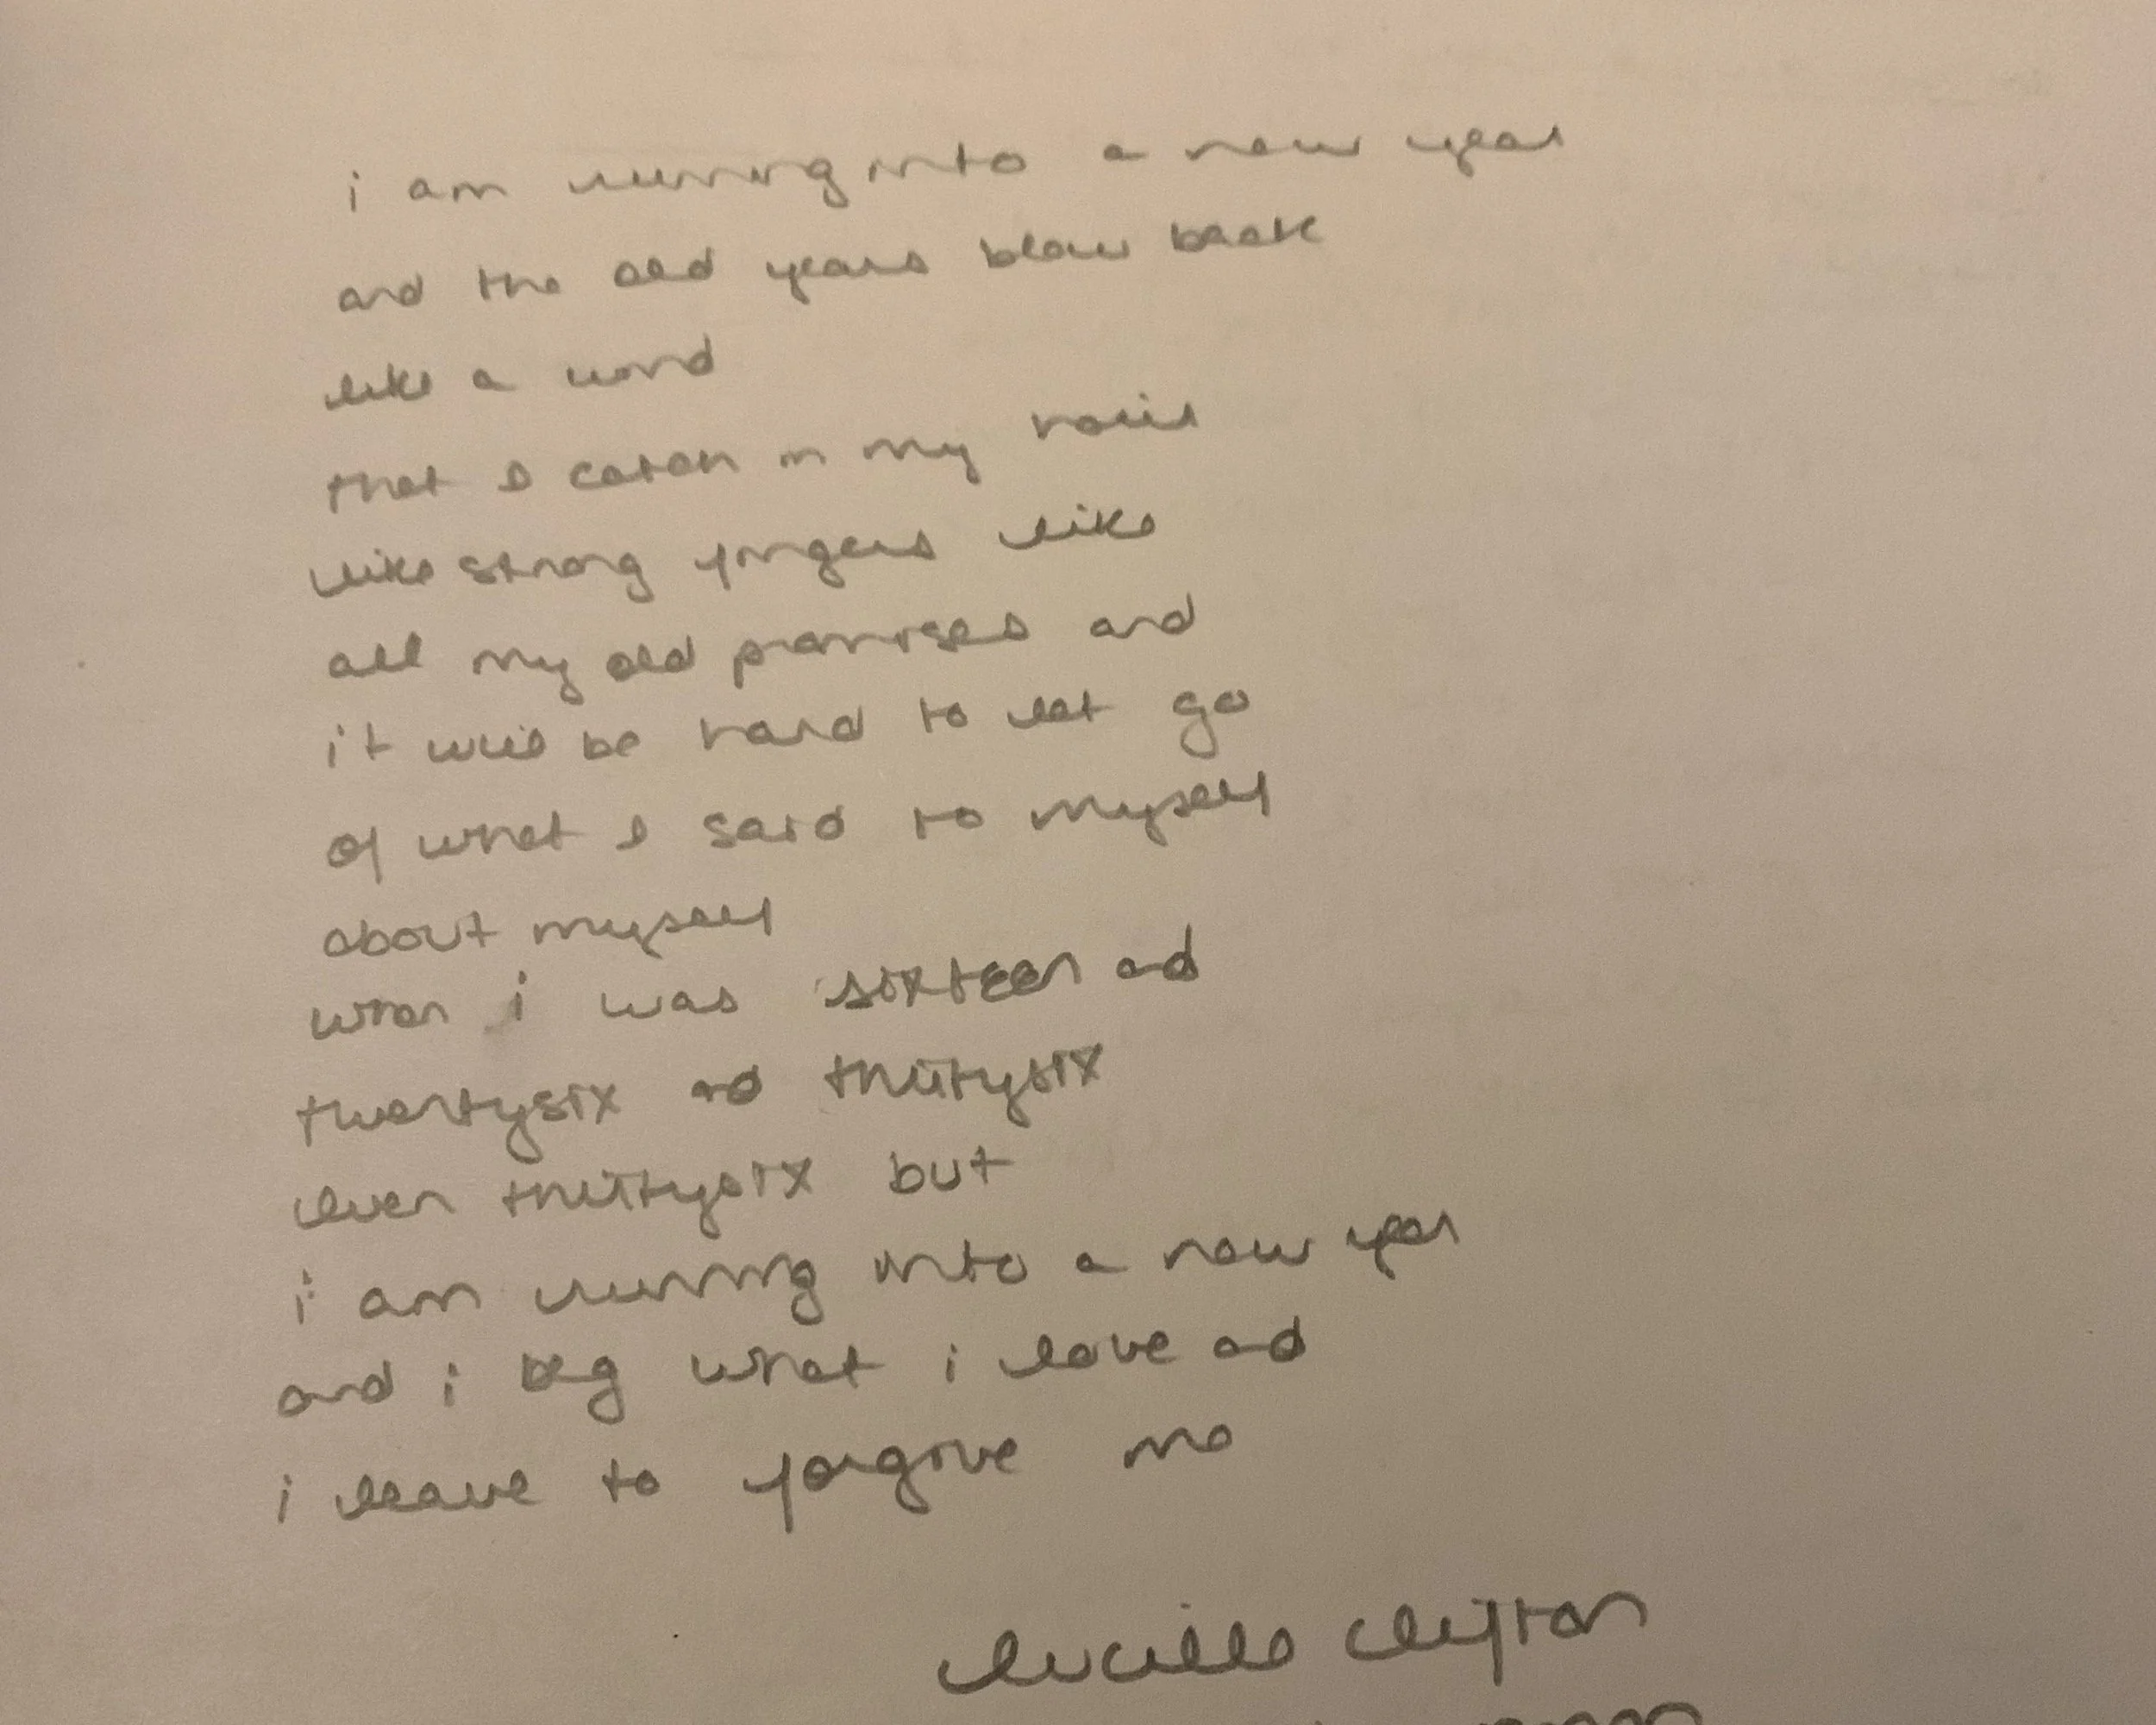 i am running into a new year
and the old years blow back
like a wind
that I catch in my hair
like strong fingers like
all my old promises and
it will be hard to let go
of what I said to myself
about myself
when i was sixteen and
twentysix and thirtysix
even thirtysix but
i am running into a new year
and i beg what i love and
i leave to forgive me
lucille clifton